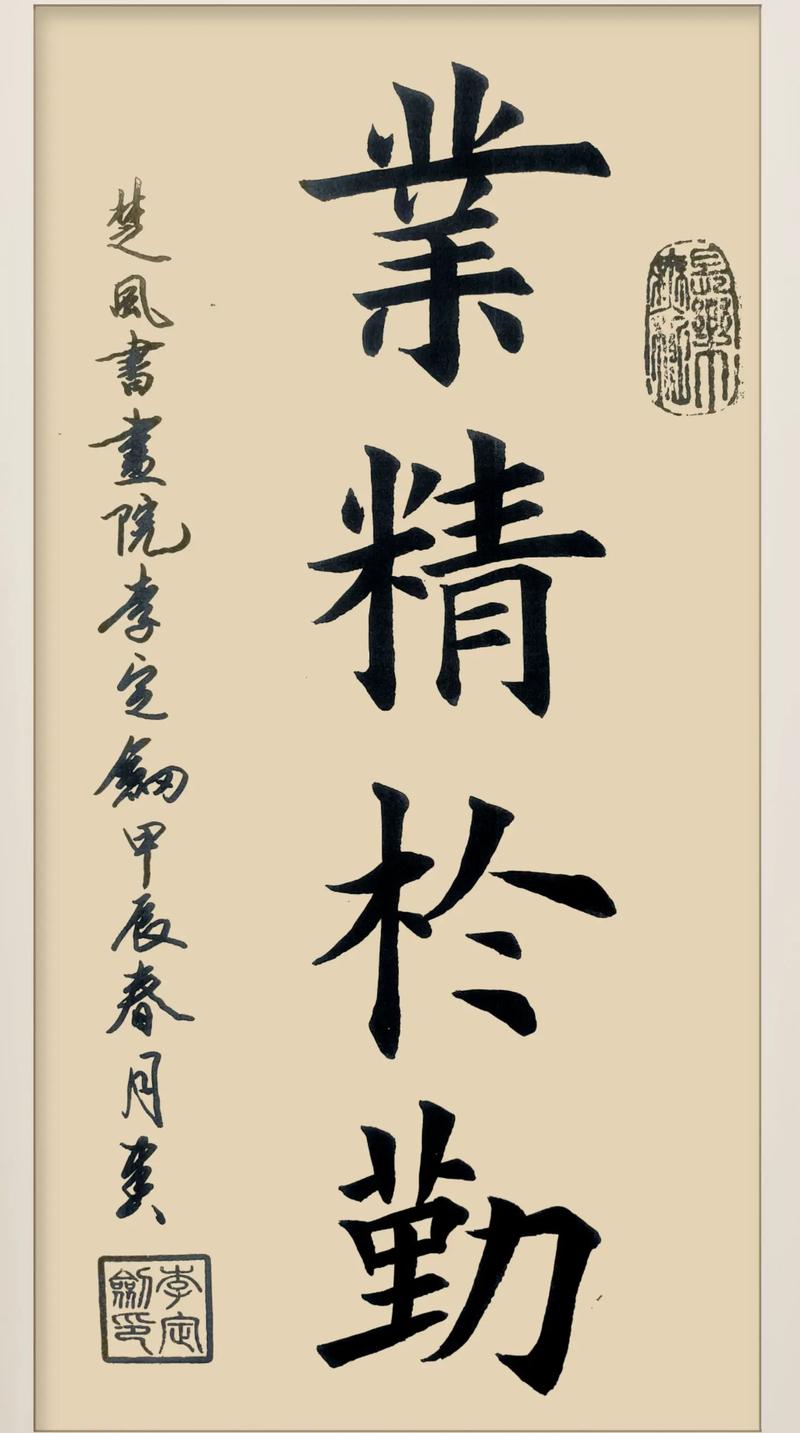 業精於勤
楚風書畫院李定劍甲辰春月
李定
劍印